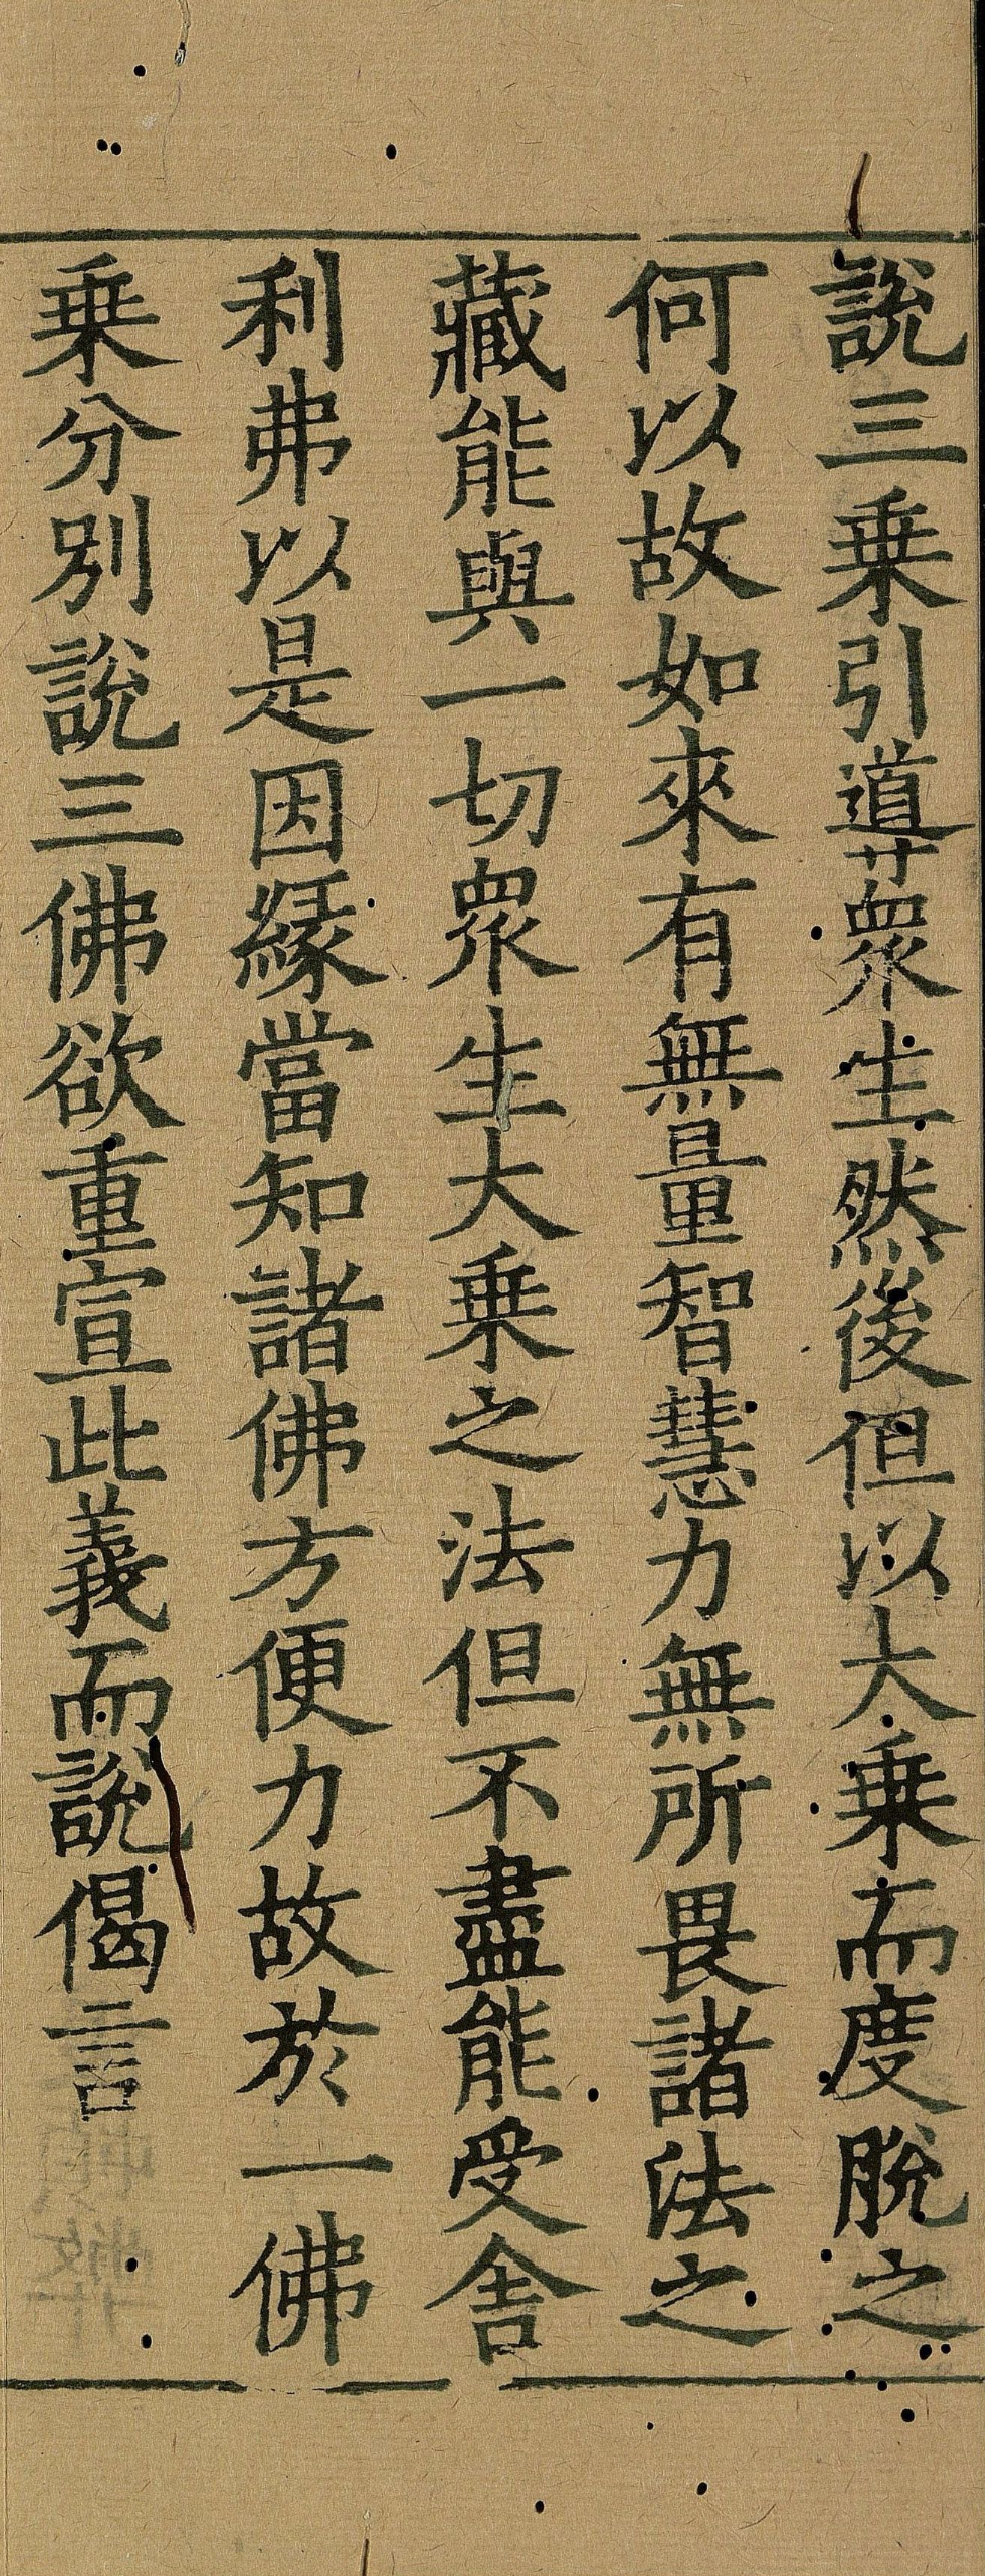 說三乗引導衆生然後但以大乗而度脫之
何以故如來有無量智慧力無所畏諸法之
藏能與一切衆生大乗之法但不盡能受舍
利弗以是因緣當知諸佛方便力故於一佛
乗分別說三佛欲重宣此義而說偈言